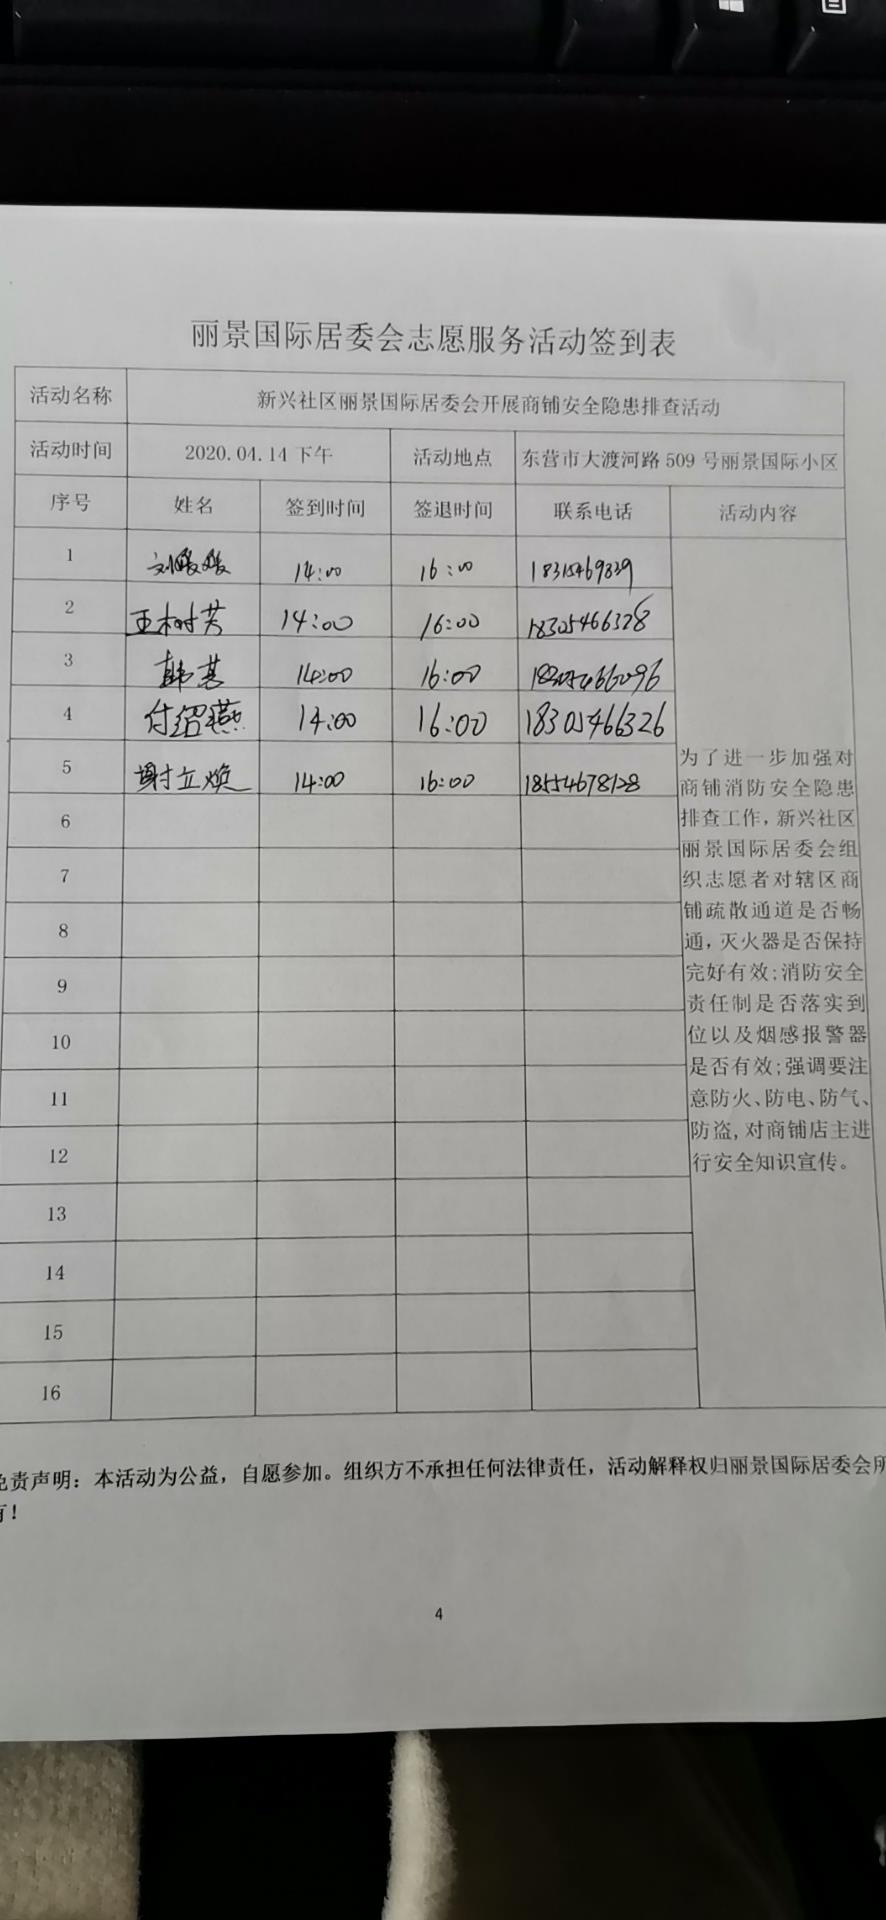 丽景国际居委会志愿服务活动签到表
活动名称 新兴社区丽景国际居委会开展商铺安全隐患排查活动
活动时间 2020.04.14下午 活动地点 东营市大渡河路509号丽景国际小区
序号 姓名 签到时间 签退时间 联系电话 活动内容
1 刘媛媛 14:00 16:00 18315469839
2 王树芳 14:00 16:00 18305466328
3 韩 14:00 16:00
4 付绍燕 14:00 16:00 18305466326
5 谢立焕 14:00 16:00 18554678128
6
7
8
9
10
11
12
13
14
15
16
为了进一步加强对
商铺消防安全隐患
排查工作,新兴社区
丽景国际居委会组
织志愿者对辖区商
铺疏散通道是否畅
通,灭火器是否保持
完好有效;消防安全
责任制是否落实到
位以及烟感报警器
是否有效;强调要注
意防火、防电、防气、
防盗,对商铺店主进
行安全知识宣传。
免责声明：本活动为公益，自愿参加。组织方不承担任何法律责任，活动解释权归丽景国际居委会所
有！
4